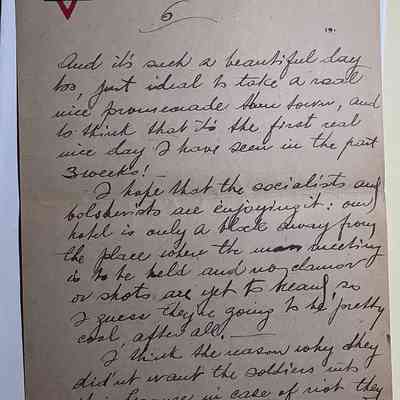 6
19.
And it's such a beautiful day
too, just ideal to take a real
nice promenade thru town, and
to think that it's the first real
nice day I have seen in the past
3 weeks!
I hope that the socialists and
bolshevists are enjoying it: our
hotel is only a block away from
the place where the meeting
is to be held and no clamor
or shots are yet to heard, so
I guess they're going to be pretty
cool, after all.—
I think the reason why they
did'nt want the soldiers into
because in case of riot they